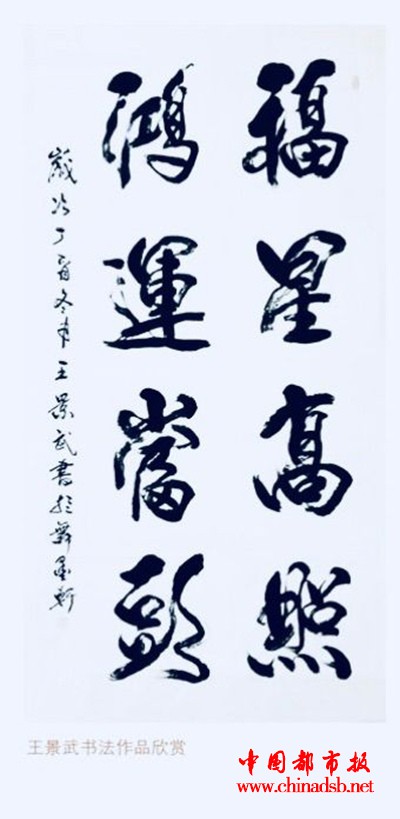 福星高照
鴻運當頭
歲次丁酉冬月王景武書於舞墨軒
王景武书法作品欣赏
中国都市报
www.chinadsb.net